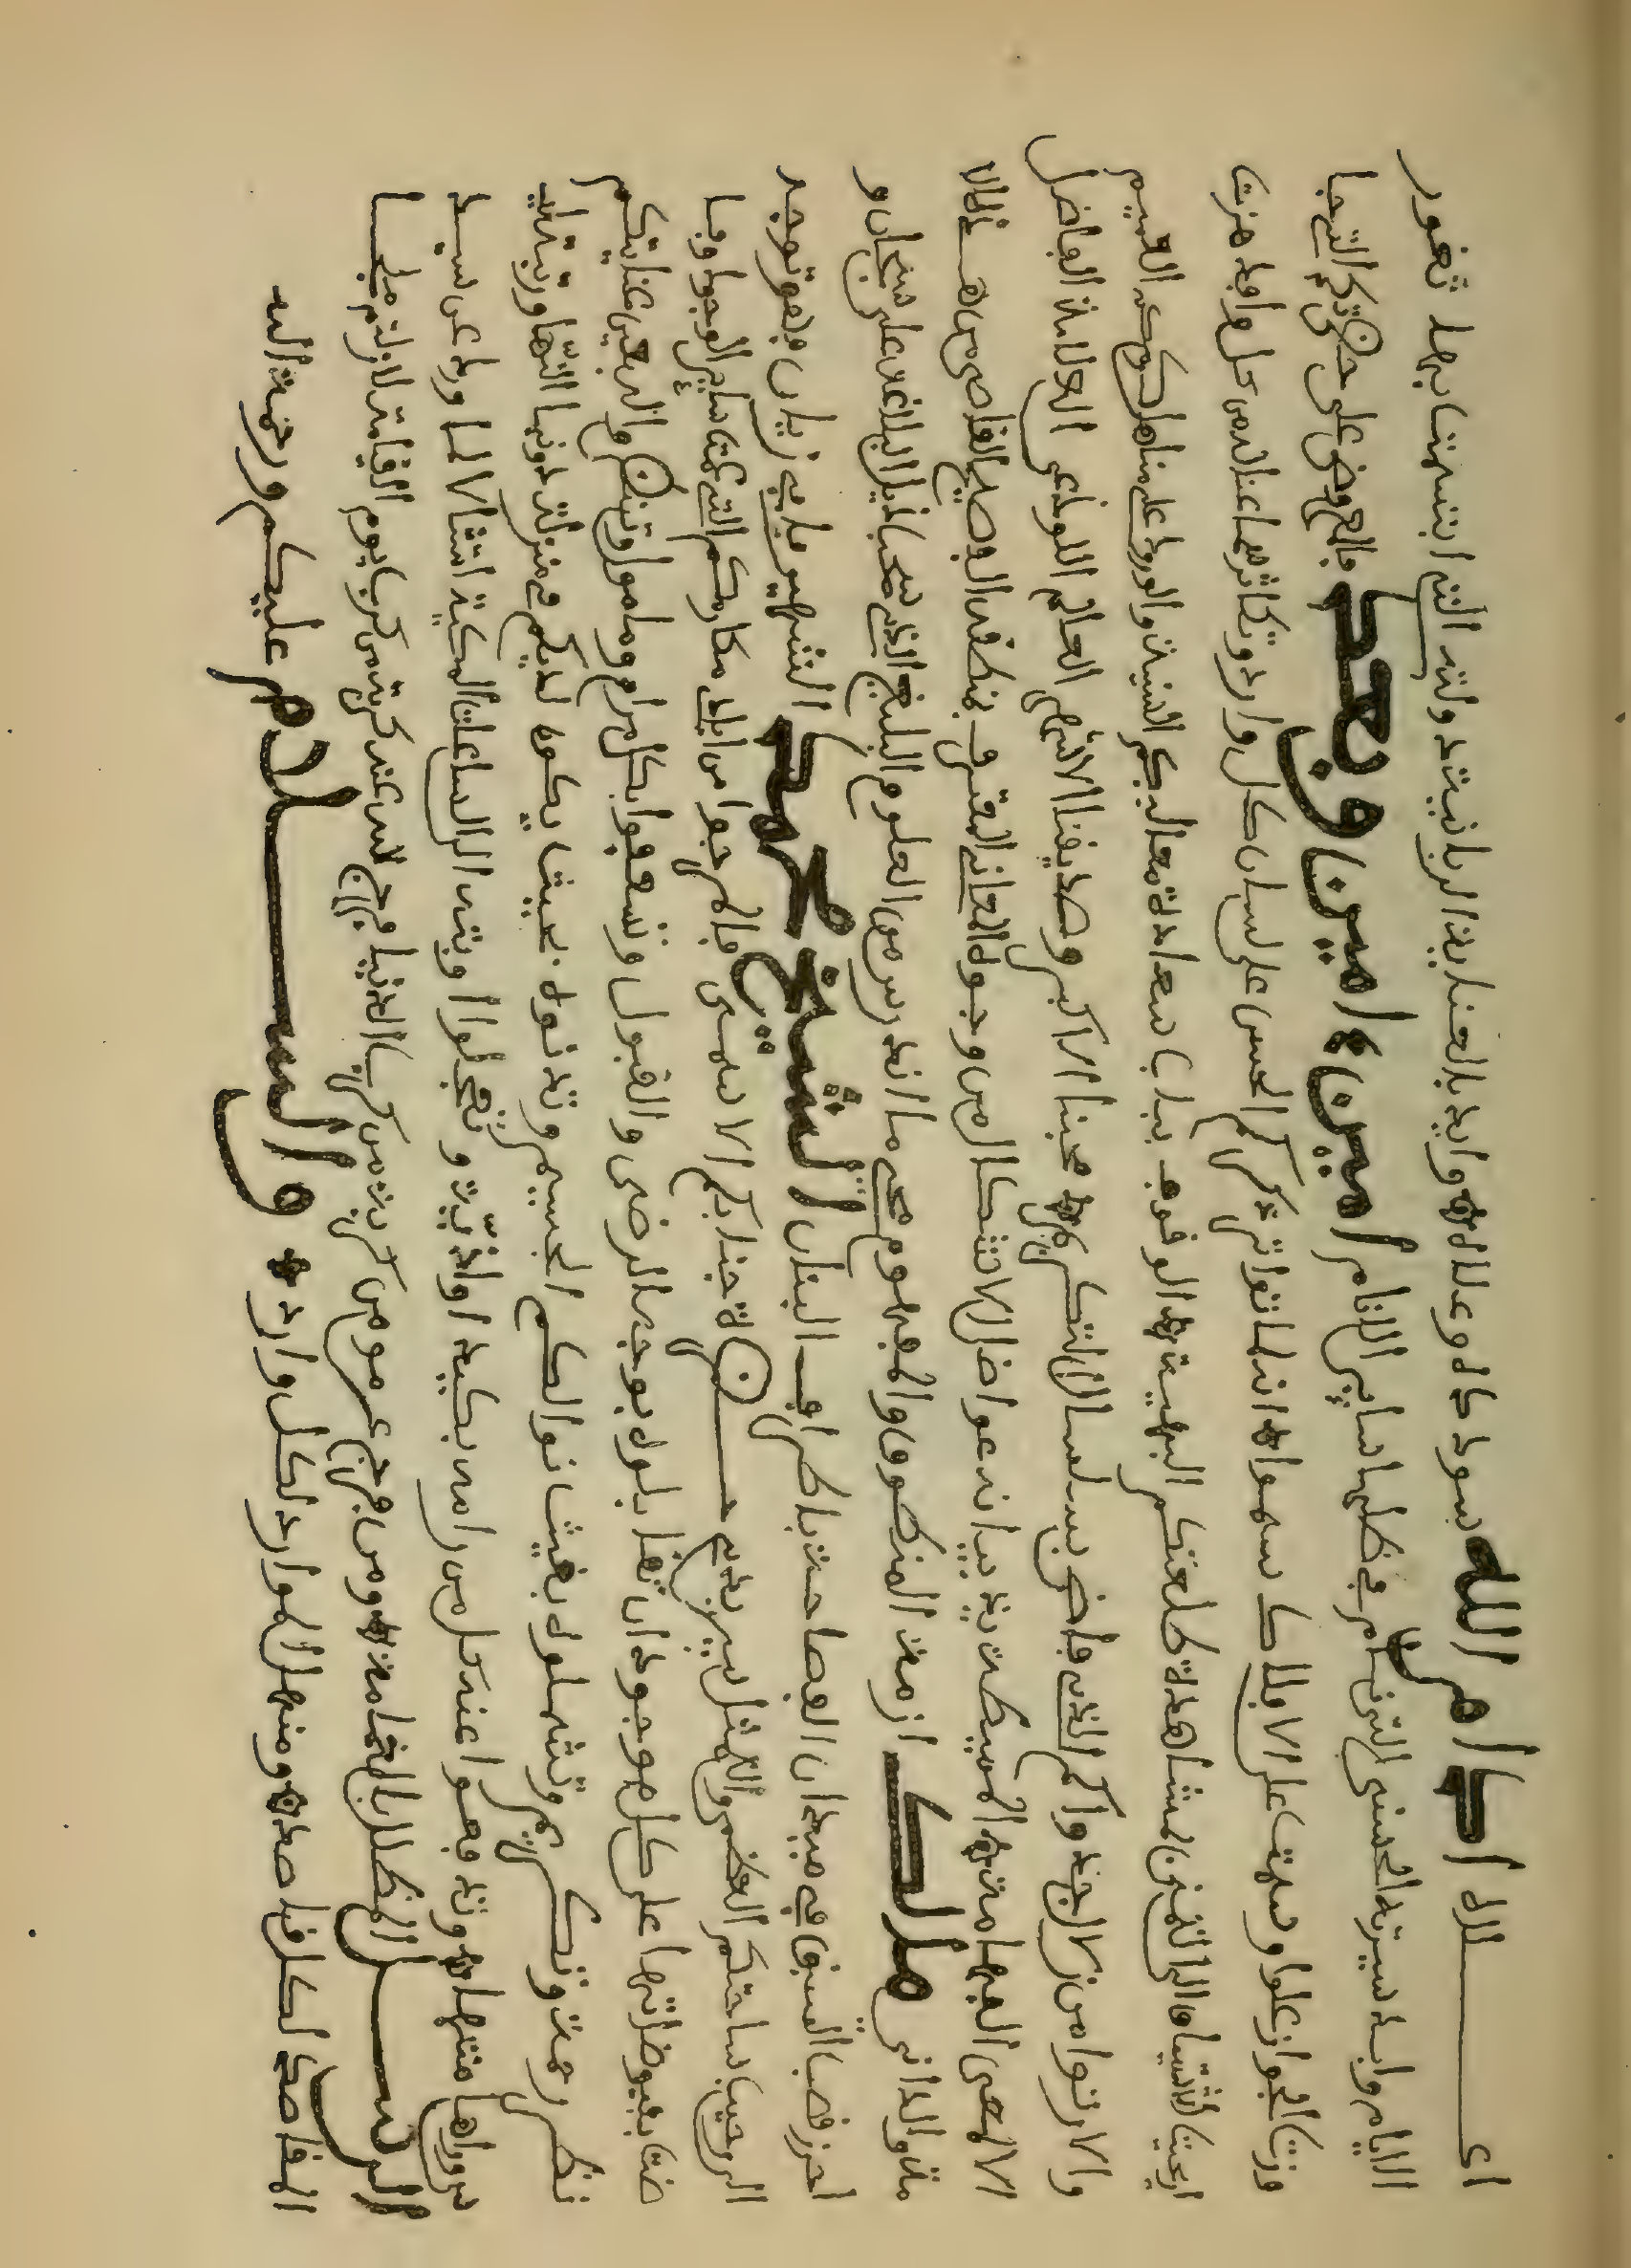 اعـــلاه ادام الله سوددك وعلاه وايد بالعناية الربانية دولته التي ابتسمت بها ثغور
الايام وابد سيرته الحسنى التي نام في ظلها ساير الانام امين امين وبعد فالمعروض على حضرتكم التي جا
وزت الجوزا علوا وسمت على الافلاك سموا انه لما تواتر ذكركم الحسن على لسان كل وارد وتكاثر محل وافد هزت
اريحيت الاشتياق الى التمني لمشاهدة طلعتكم البهية الوقوف بباب سعادة معاليكم السنية والورود على مناهل كرمكم العميم
والارتوا من زلال جدواكم الذي فاض بسلسال التكريم محبنا الاكبر وصديقنا الاشهر العالم اللوذعي العلامة الفاضل
الالمعي الفهامة المميطة يد بيانه الاشكال من وجوه المعاني المعترف بفضله الفصيح القاصي من
والداني مالك ازمة المنطوق والمفهوم محي ما اندرس من العلوم البليغ الذي سحب ذيل البلاغة على سحبان و
احرز قصب السبق في ميدان الفصاحة باطراف البنان الشيخ محمد الشهير زيان فهو توجه
الى ساحتكم العظمى والمثل بين يدي حـــضرة جنابكم الاسمى فالمرجوا من ايادي مكارمكم التي عمت ساير الوجود وفا
ضت بفيوضاتها على كل موجود ان تقابلوه بوجه الرضى والقبول وتسعفوا بكل مرام ومامول وتنضروا اليه بعين عنايتكم
نظر رحمة وتكريم وتشملوه بغيث نوالكم الجسيم بحيث يكون لديكم في منزلة دونها السها ورتبة
منتهاه وتدفعوا عنه كل من رامه بكيد او اذية وتعجلوا اوبته الى المكية امتثالا لما ورد عن سيد
الرســل المظلل بالغمامة ومن فرج عن مومن كربة من كرب الدنيا فرج الله عنه كربة من كرب يوم القيامة لازلتم ملجا
المقاصد لكل قاصد ومنهل الموارد لكل وارد والســـلام عليكم ورحمة الله